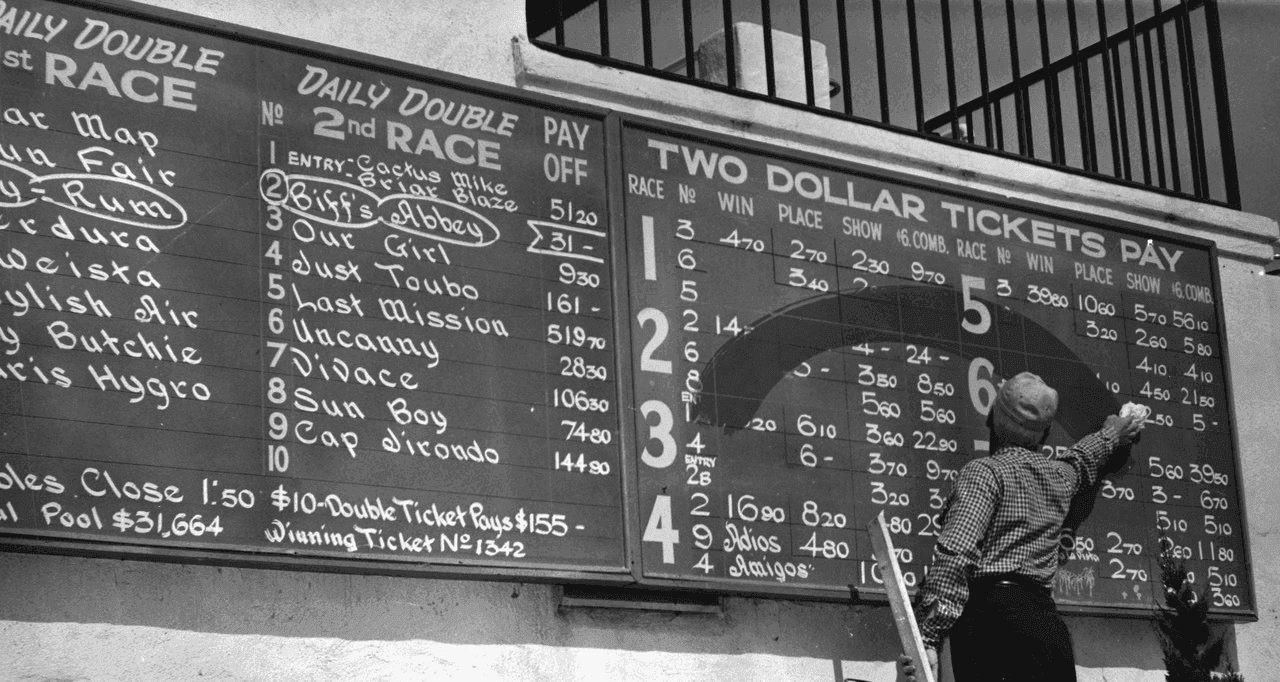 DAILY DOUBLE
st RACE
ar Map
un Fair
y = Rum
rdura
weista
ylish Air
y Butchie
ris Hygro
les Close 1:50
al Pool $31,664
DAILY DOUBLE
Nº 2nd RACE PAY OFF
1 ENTRY - Cactus Mike
Briar Blaze 5120
2 Biff's Abbey 31 -
3 Our Girl 930
4 Just Toubo 161 -
5 Last Mission 51970
6 Uncanny 2830
7 Divace 10630
8 Sun Boy 7480
9 Cap Jirondo 14490
10
$10 - Double Ticket Pays $155 -
Winning Ticket Nº 1342
TWO DOLLAR TICKETS PAY
RACE Nº WIN PLACE SHOW $6.COMB.
1 3 470 270 230 970
6 340
5
2 2 14
6 4 - 24 -
8 350 850
560 560
3 1 20 610 360 2290
4 6 - 370
ENTRY
2B 320
4 2 1690 820
9 Adios 480
4 Amigos
RACE Nº WIN PLACE SHOW $6.COMB.
5 3 3980 1060 570 5610
320 260 580
410 410
6 450 2150
250 5 -
560 3950
370 3 - 670
510 510
270 1180
270 510
360